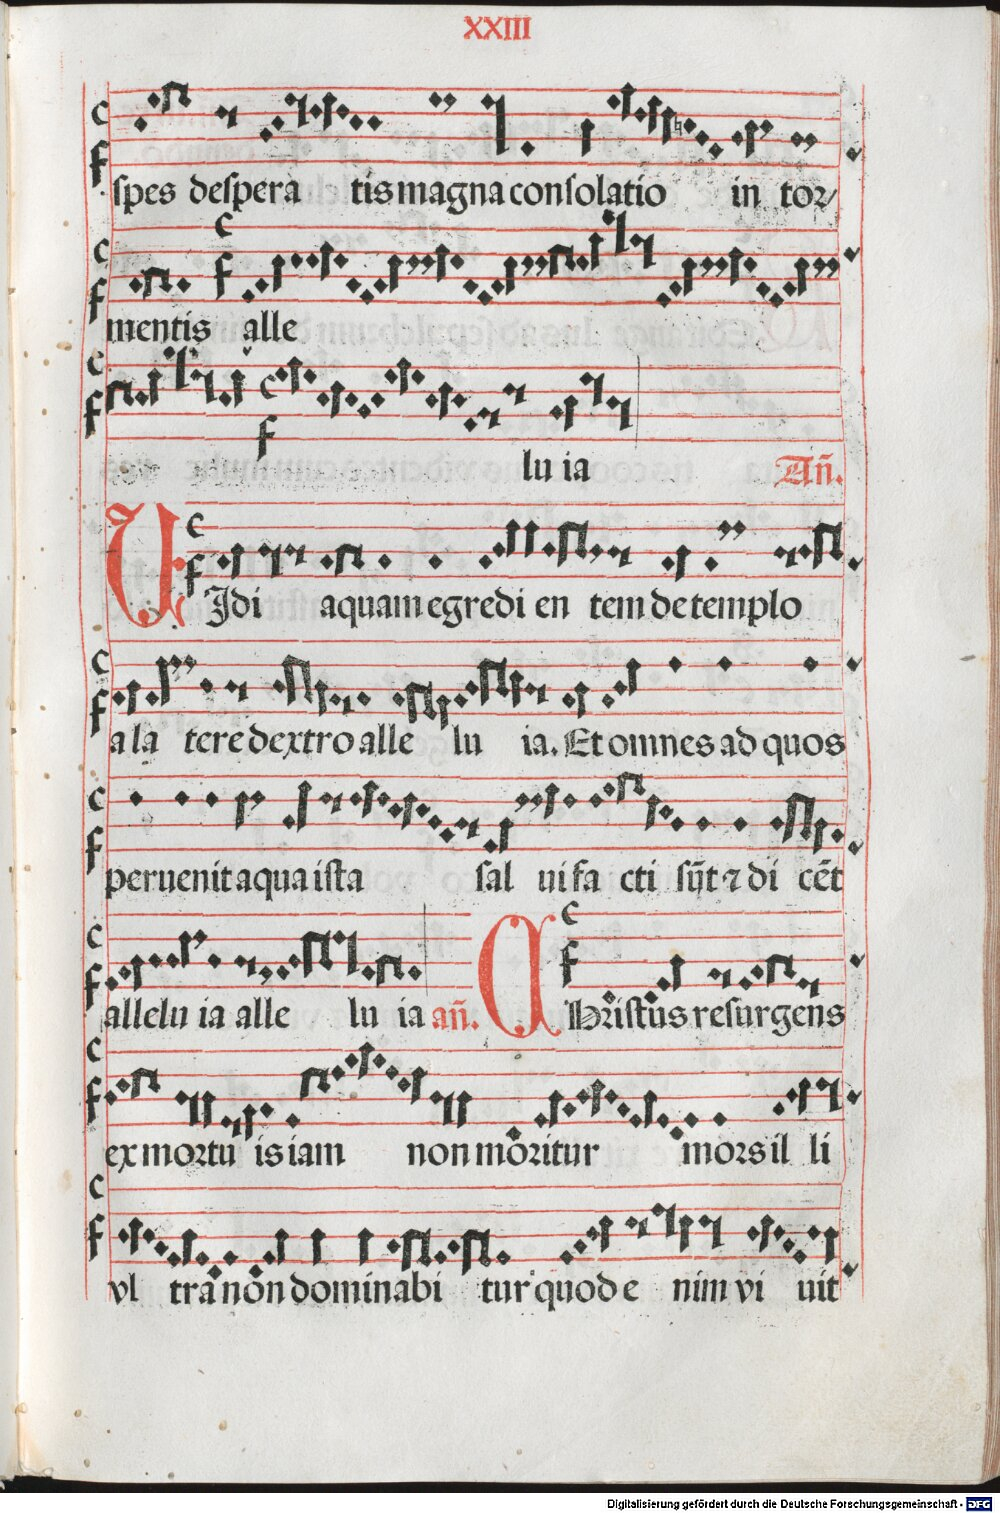 XXIII
spes despera tis magna consolatio in tor/
mentis alle
lu ia Añ.
VJdi aquam egredi en tem de templo
a la tere dextro alle lu ia. Et omnes ad quos
peruenit aqua ista sal ui fa cti sũt ⁊ di cẽt
allelu ia alle lu ia añ. CHristus resurgens
ex mortu is iam non moritur mors il li
vl tra non dominabi tur quod e nim vi uit
Digitalisierung gefördert durch die Deutsche Forschungsgemeinschaft - DFG